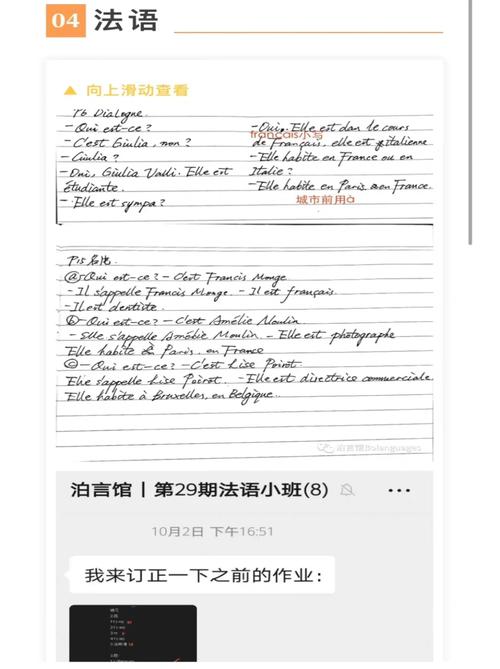 04 法语
向上滑动查看
P6 Dialogne.
- Qui est-ce ?
- C'est Giulia, non ?
- Giulia ?
- Oui, Giulia Valli. Elle est
étudiante.
- Elle est sympa ?
- Oui. Elle est dan le cours
français小写
de Français, elle est italienne
- Elle habite en France ou en
Italie ?
- Elle habite en Paris en France.
城市前用à
P15
ⓐ Qui est-ce ? - C'est Francis Monge
- Il s'appelle Francis Monge. - Il est français.
- Il est dentiste.
ⓑ - Qui est-ce ? - C'est Amélie Moulin
- Elle s'appelle Amélie Moulin. - Elle est photographe
Elle habite à Paris. en France
ⓒ - Qui est-ce ? - C'est Lise Poirot.
Elle s'appelle Lise Poirot. - Elle est directrice commerciale.
Elle habite à Bruxelles, en Belgique.
泊言馆Bolanguages
泊言馆 | 第29期法语小班(8)
10月2日 下午16:51
我来订正一下之前的作业: